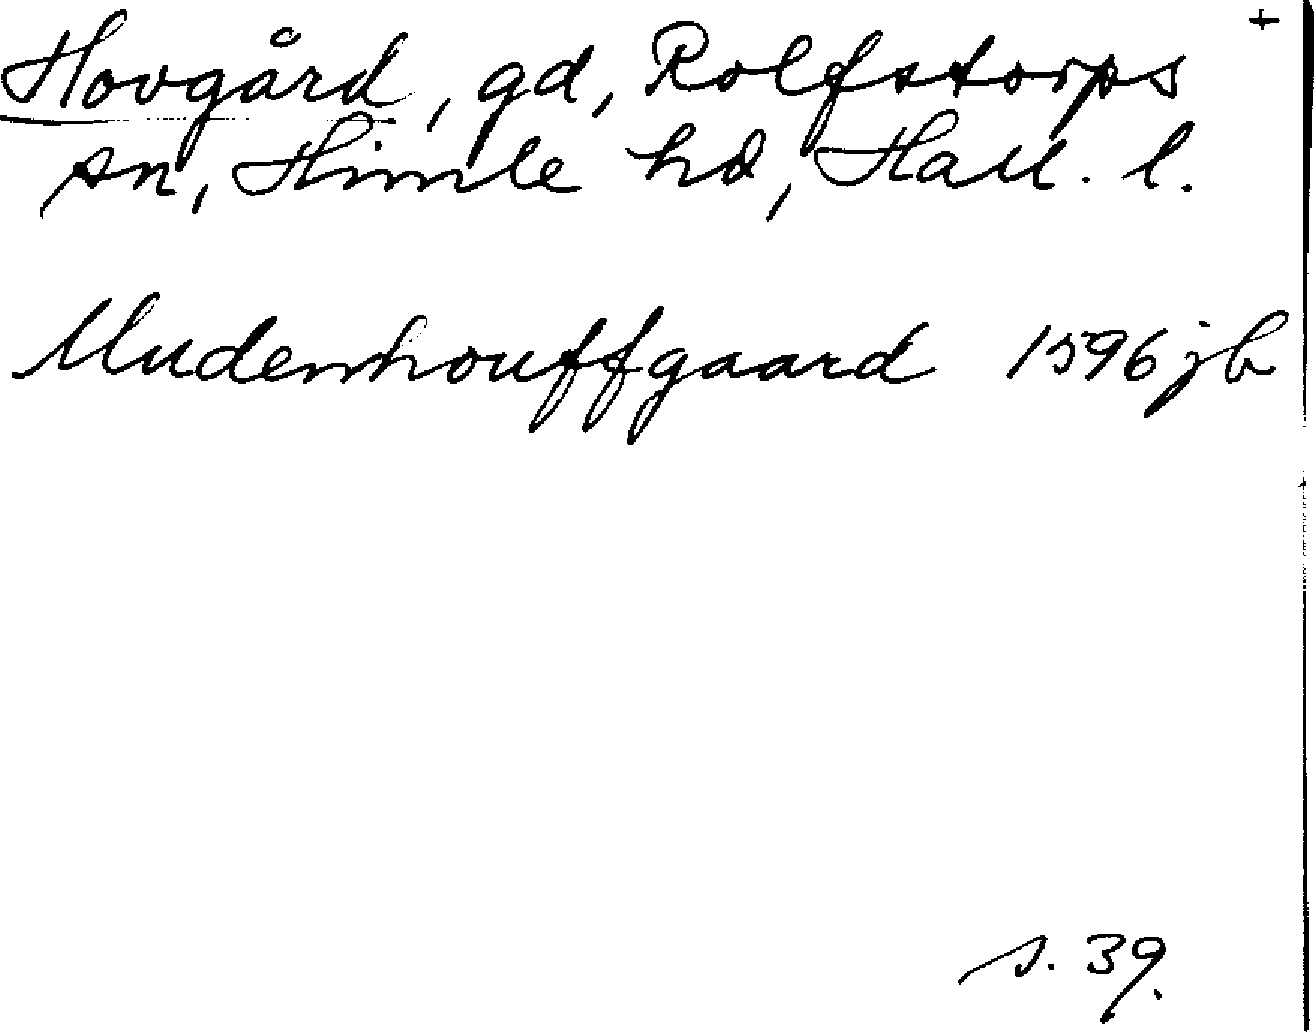 +
Hovgård, gd, Rolfstorps
sn, Himle hd, Hall. l.
Mudenhouffgaard 1596 jb
s. 39.